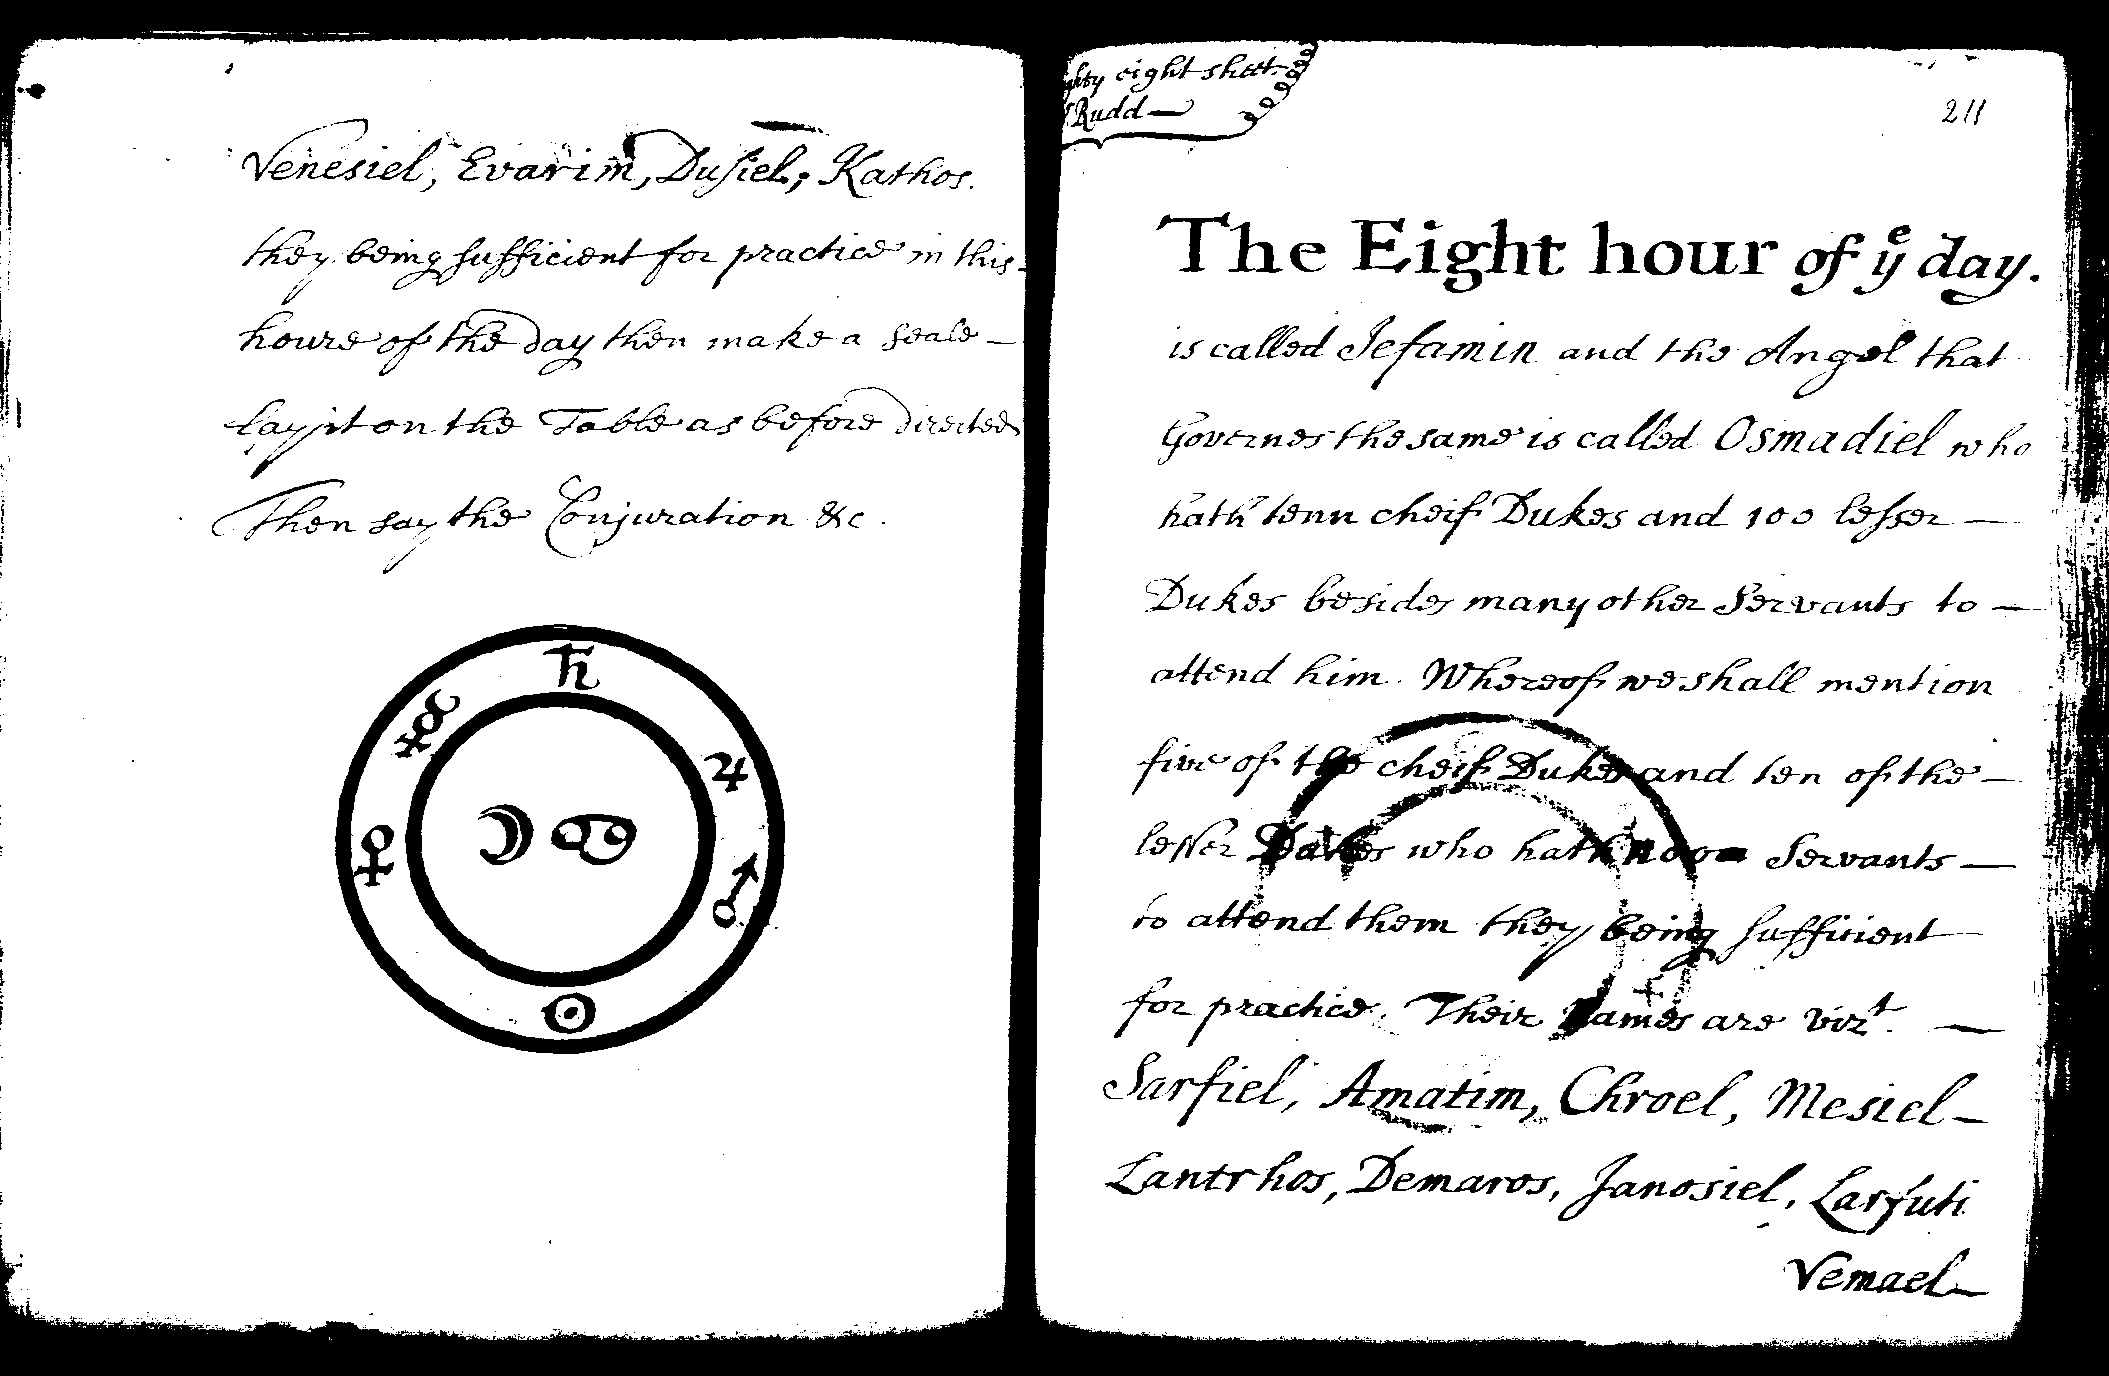 Venesiel, Evarim, Dusiel, Kathos.
they being sufficient for practice in this
houre of the day then make a seale —
lay it on the Table as before directed
Then say the Conjuration &c.
♄
☿
♃
☽ ♋
♀
♂
☉
eight sheet.
Rudd —
211
The Eight hour of yͤ day.
is called Jefamin and the Angel that
Governes the same is called Osmadiel who
hath tenn cheif Dukes and 100 lesser —
Dukes besides many other Servants to —
attend him. Whereof we shall mention
five of the cheif Dukes and ten of the —
lesser Dukes who hath Servants —
to attend them they being sufficient
for practice. Their Names are vizᵗ. —
Sarfiel, Amatim, Chroel, Mesiel —
Lantrhos, Demaros, Janosiel, Larfuti
Vemael —